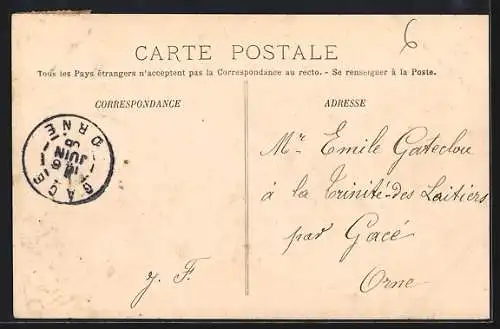 6
CARTE POSTALE
Tous les Pays étrangers n'acceptent pas la Correspondance au recto. - Se renseigner à la Poste.
CORRESPONDANCE
ADRESSE
GACÉ
ORNE
JUIN
Mr Emile Gateclou
à la Trinité-des Laitiers
par Gacé
Orne
J. F.